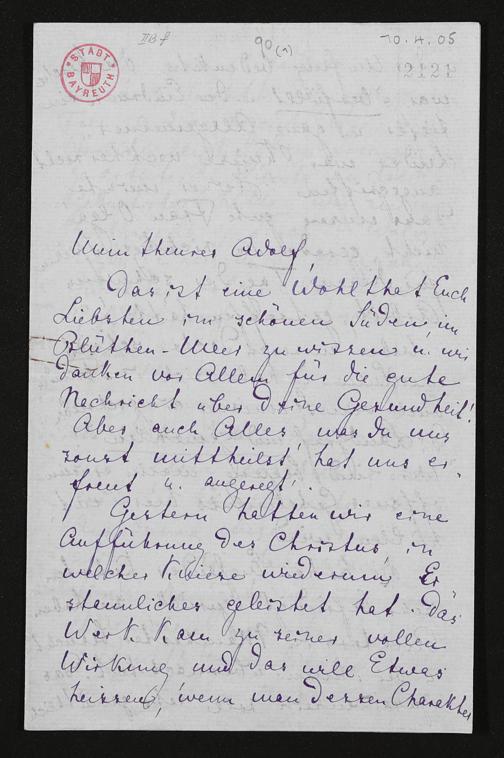 II B f
90 (1)
10.4.05
STADT BAYREUTH
2121
Mein theurer Adolf,
Das ist eine Wohlthat Euch
Liebsten im schönen Süden, im
Blüthen-Meer zu wissen u. wir
danken vor Allem für die gute
Nachricht über Deine Gesundheit!
Aber auch Alles was Du uns
sonst mittheilst, hat uns er-
freut u. angeregt!
Gestern hatten wir eine
Aufführung des Christus, in
welcher Kniese wiederum Er-
staunliches geleistet hat. Das
Werk kam zu seiner vollen
Wirkung und das will Etwas
heissen, wenn man dessen Charakter